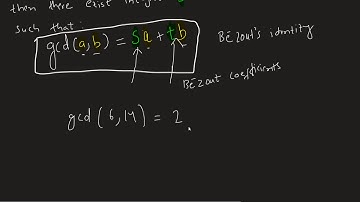 then there exist
such that:
gcd(a,b) = sa + tb
BÉzout's identity
BÉzout coefficients
gcd(6,14) = 2.